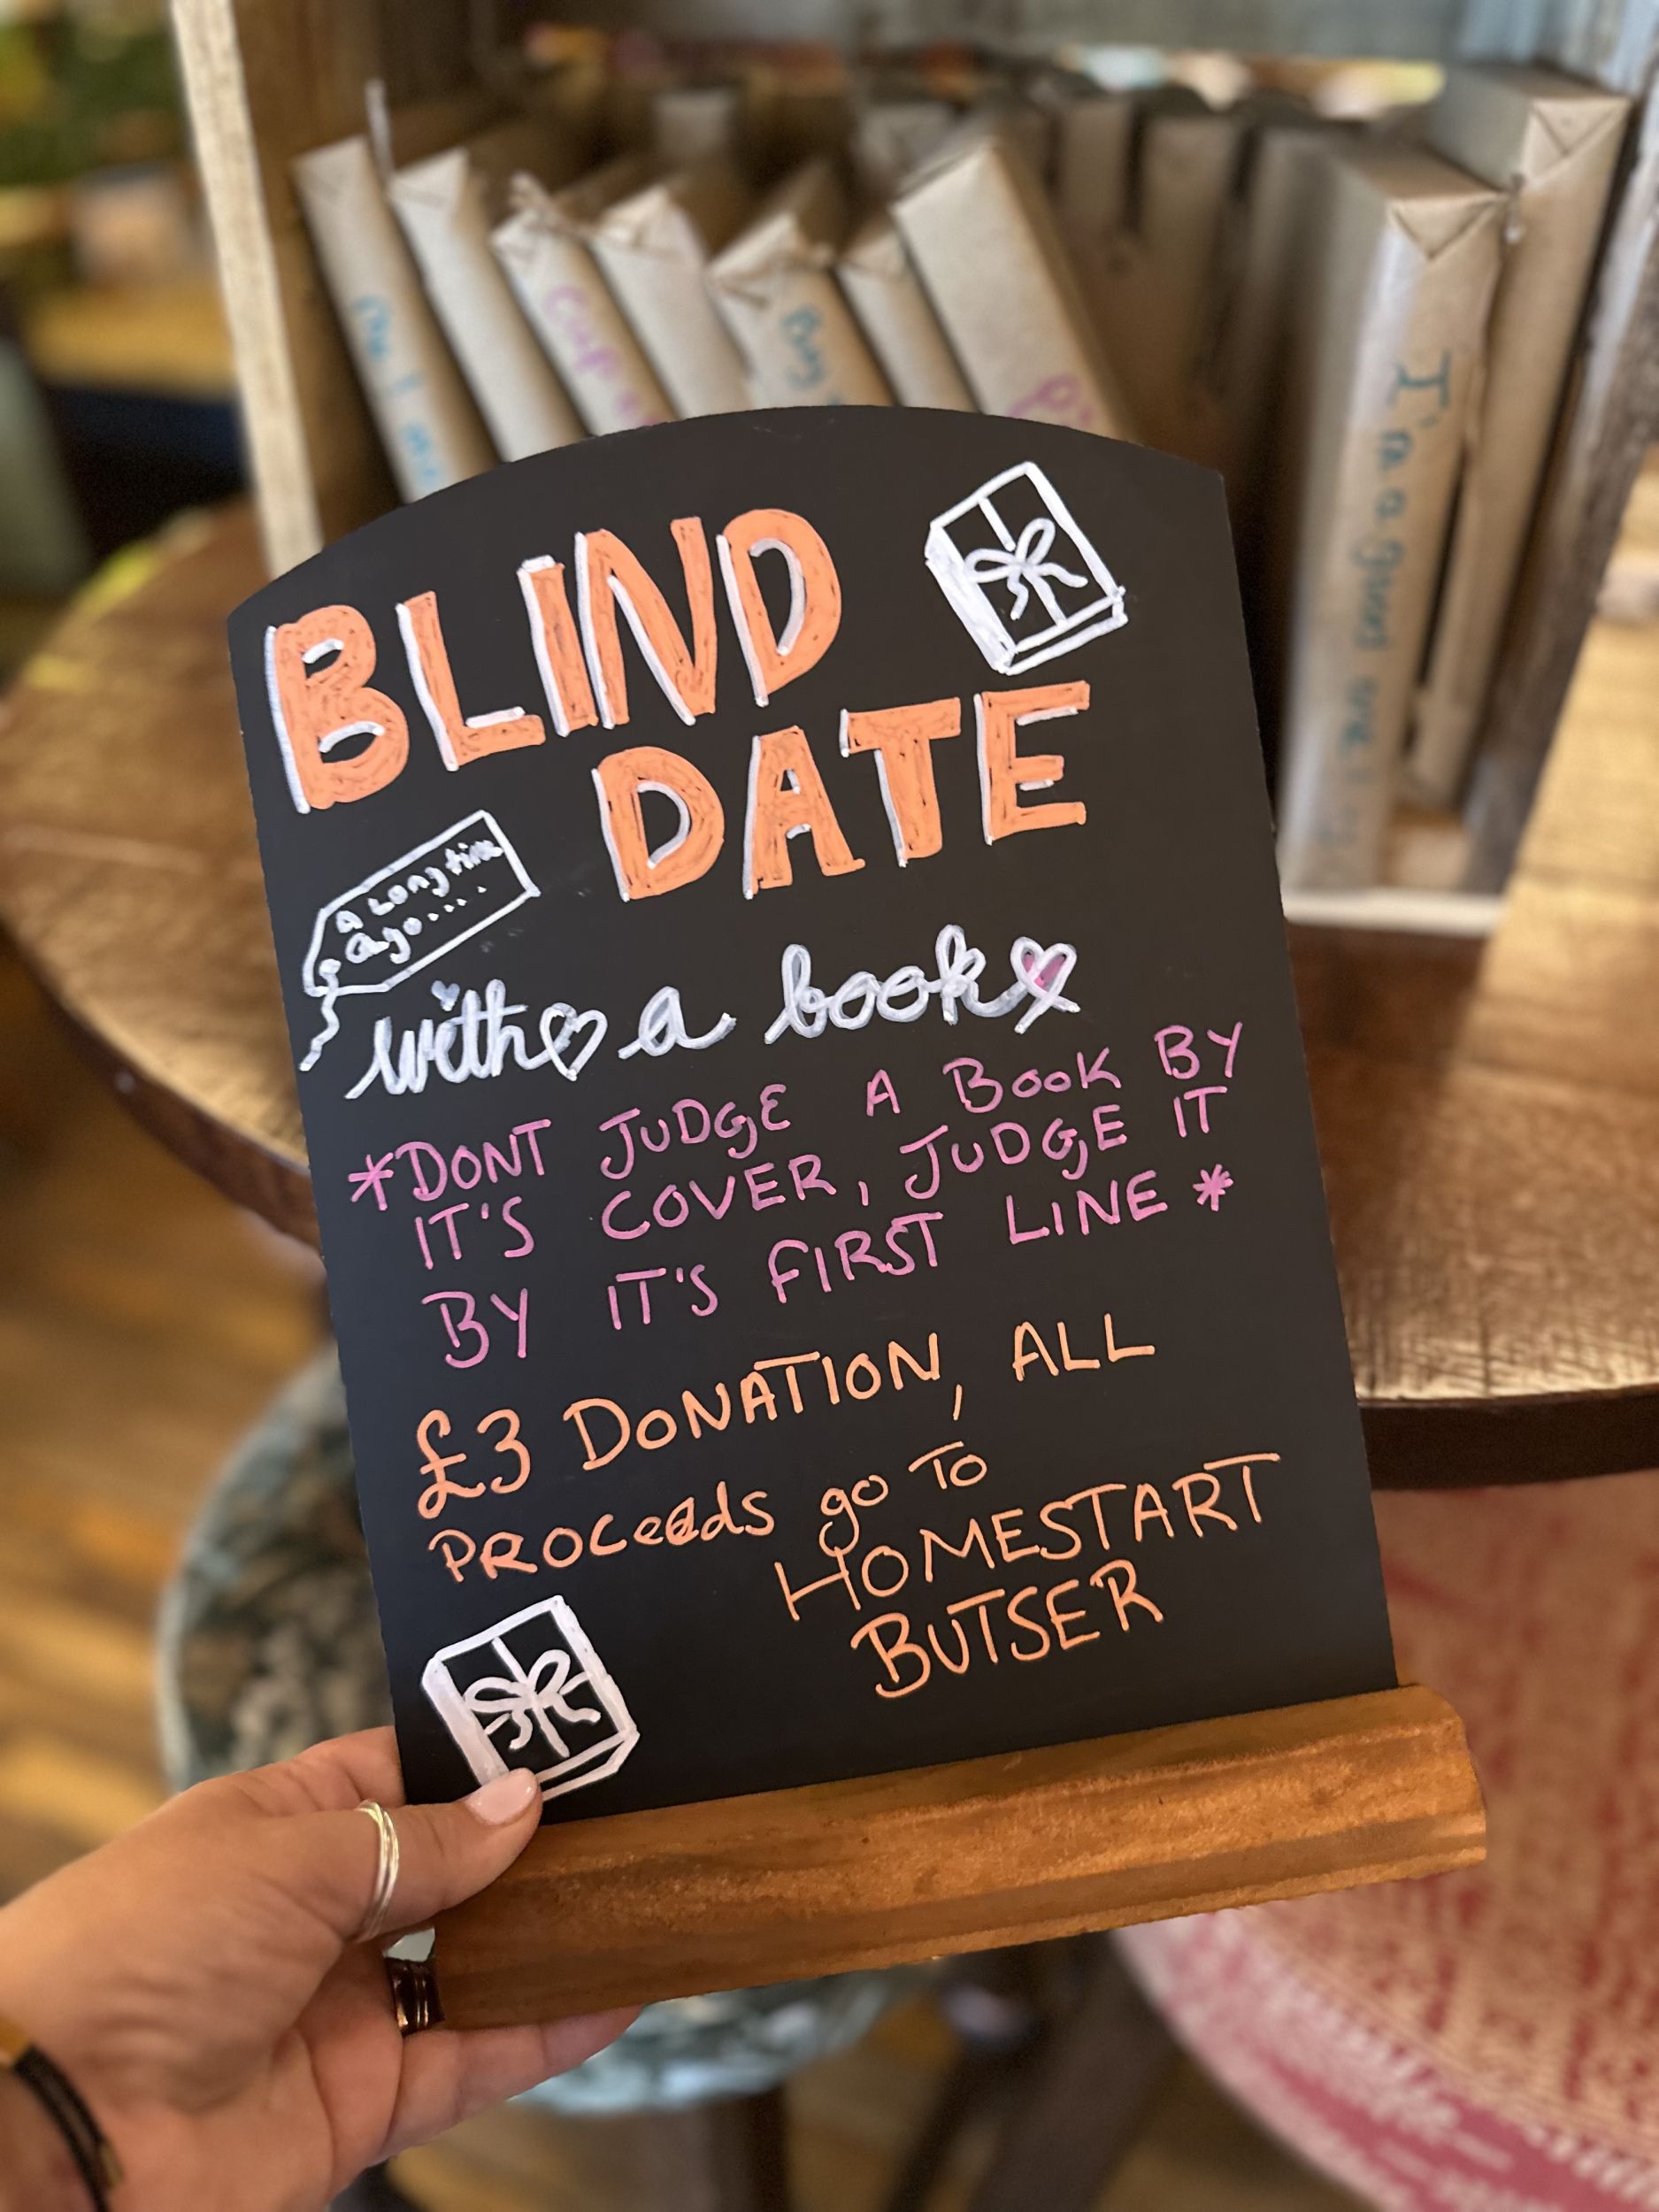 I'm a good
BLIND
DATE
A Long time
ago....
with a book
*DONT JUDGE A BOOK BY
IT'S COVER, JUDGE IT
BY IT'S FIRST LINE*
£3 DONATION, ALL
PROCEEDS go To
HOMESTART
BUTSER